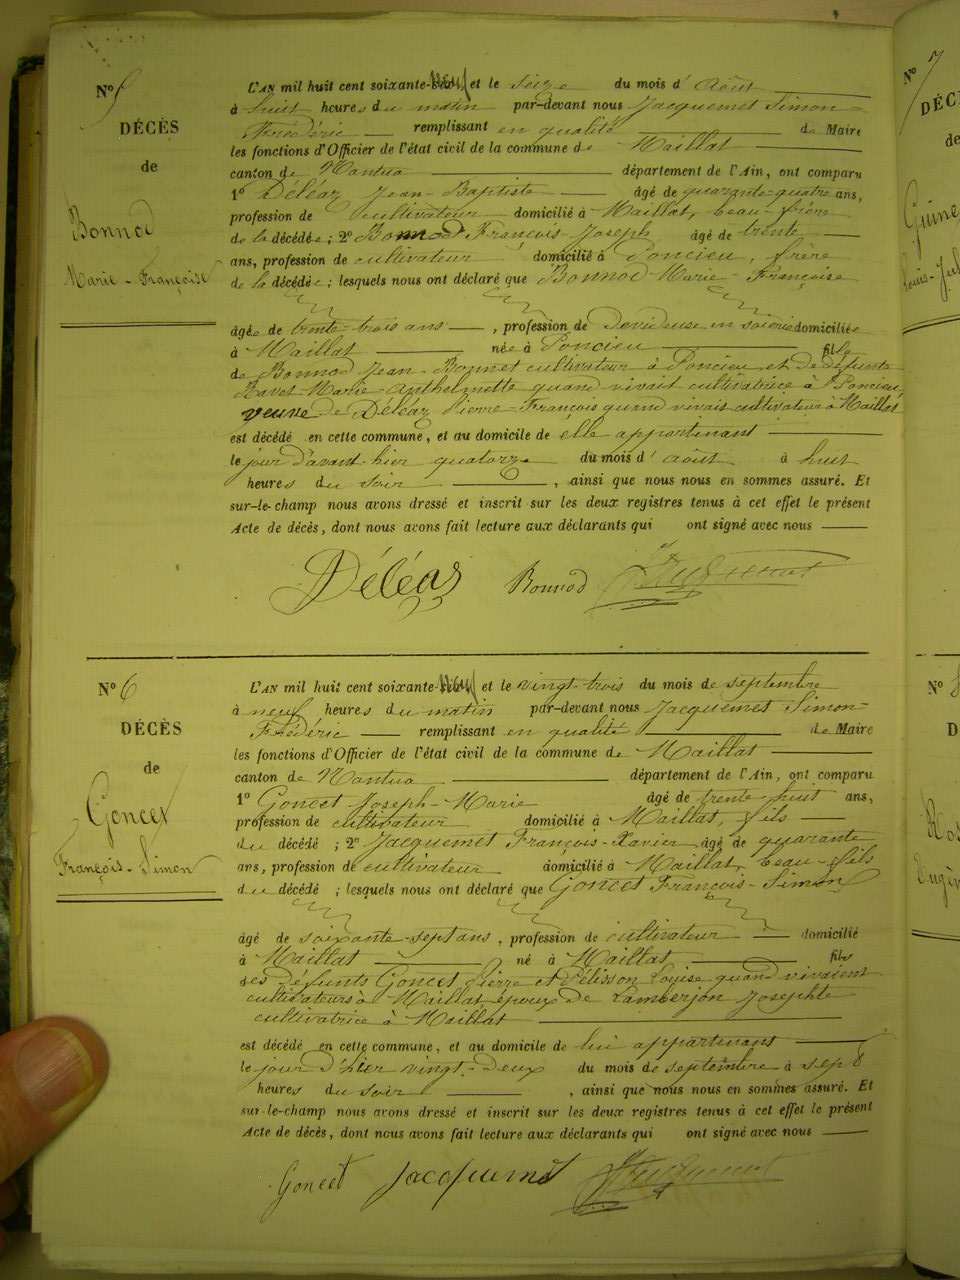 N° 5
DÉCÈS
de
Bonnod
Marie-Françoise
L'AN mil huit cent soixante-neuf et le seize du mois d'Août
à huit heures du matin par-devant nous Jacquemet Simon-
Frédéric remplissant en qualité de Maire
les fonctions d'Officier de l'état civil de la commune de Maillat
canton de Nantua département de l'Ain, ont comparu
1° Déléaz Jean-Baptiste âgé de quarante-quatre ans,
profession de cultivateur domicilié à Maillat, beau-frère
de la décédée; 2° Bonnod François-Joseph âgé de trente
ans, profession de cultivateur domicilié à Poncieu, frère
de la décédée; lesquels nous ont déclaré que Bonnod Marie-Françoise
âgée de trente-trois ans, profession de Dévideuse en soierie domiciliée
à Maillat née à Poncieu fille
de Bonnod Jean-Bonnet cultivateur à Poncieu et de défunte
Ravet Marie-Anthelmette quand vivait cultivatrice à Poncieu,
veuve de Déléaz Pierre-François quand vivait cultivateur à Maillat
est décédé en cette commune, et au domicile de elle appartenant
le jour d'avant-hier quatorze du mois d'août à huit
heures du soir, ainsi que nous nous en sommes assuré. Et
sur-le-champ nous avons dressé et inscrit sur les deux registres tenus à cet effet le présent
Acte de décès, dont nous avons fait lecture aux déclarants qui ont signé avec nous
Déléaz Bonnod
N° 6
DÉCÈS
de
Goncet
François-Simon
L'AN mil huit cent soixante-neuf et le vingt-trois du mois de septembre
à neuf heures du matin par-devant nous Jacquemet Simon-
Frédéric remplissant en qualité de Maire
les fonctions d'Officier de l'état civil de la commune de Maillat
canton de Nantua département de l'Ain, ont comparu
1° Goncet Joseph-Marie âgé de trente-huit ans,
profession de cultivateur domicilié à Maillat, fils
du décédé; 2° Jacquemet François-Xavier âgé de quarante
ans, profession de cultivateur domicilié à Maillat, beau-fils
du décédé; lesquels nous ont déclaré que Goncet François-Simon
âgé de soixante-sept ans, profession de cultivateur domicilié
à Maillat né à Maillat fils
des défunts Goncet Pierre et Pélisson Loyise quand vivaient
cultivateurs à Maillat, époux de Lamberjon Josephte
cultivatrice à Maillat
est décédé en cette commune, et au domicile de lui appartenant
le jour d'hier vingt-deux du mois de septembre à sept
heures du soir, ainsi que nous nous en sommes assuré. Et
sur-le-champ nous avons dressé et inscrit sur les deux registres tenus à cet effet le présent
Acte de décès, dont nous avons fait lecture aux déclarants qui ont signé avec nous
Goncet Jacquemet
N° 7
N°